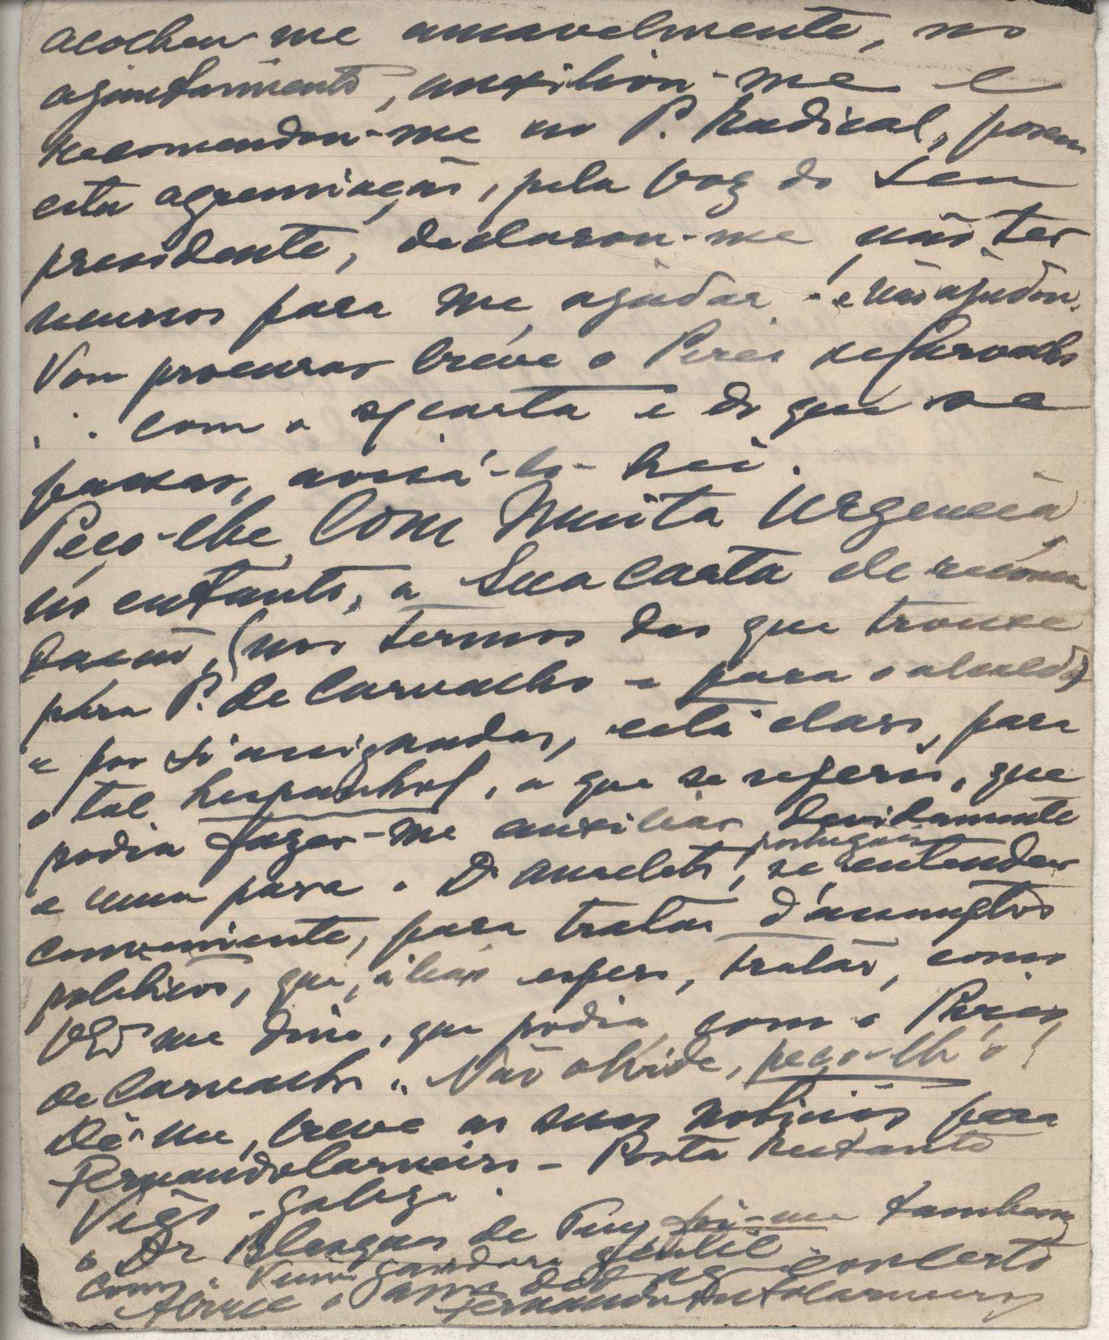 acolheu-me amavelmente, no
ajuntamiento, auxiliou-me e
recomendou-me no P. Radical, porem
esta agremiação, pela voz do seu
presidente, declarou-me não ter
recursos para me ajudar - e não ajudou.
Vou procurar breve o Peres de Carvalho
com a s/ carta e do que se
passar, avisá-lo-hei.
Peço-lhe, Com Muita Urgencia
no entanto, a Sua Carta de recomen
dação, (nos termos das que trouxe
para P. de Carvalho e para o alcaide)
e por si assignadas, está claro, para
o tal hespanhol, a que se referiu, que
podia fazer-me auxiliar devidamente
e uma para o Dr Anacleto, português se entender
conveniente, para tratar d'assumptos
politicos, que, aliás espero, tratar, como
VExª me disse, que podia, com o Peres
de Carvalho. Não olvide, peço-lh'o!
Dê-me, breve as suas noticias para
Fernando Carneiro - Posta Restante
Vigo - Galiza.
o Dr Blasquez de Puy foi-me tambem
gentil
como
Abrace o